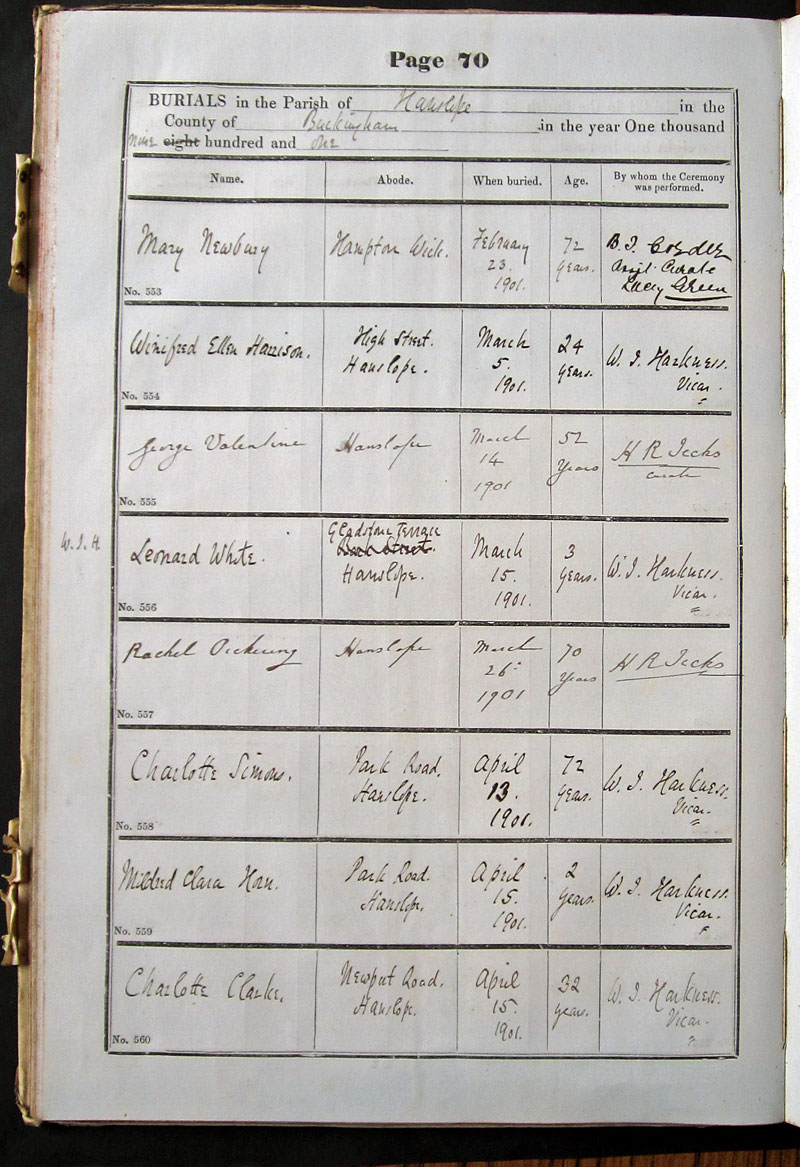 Page 70
BURIALS in the Parish of Hanslope in the
County of Buckingham in the year One thousand
nine eight hundred and one
Name. Abode. When buried. Age. By whom the Ceremony was performed.
Mary Newbury
Hampton Wick.
February
23.
1901.
72
years.
B. J.
Assist. Curate
Lacey Green
No. 553
Winifred Ellen Harrison.
High Street.
Hanslope.
March
5.
1901.
24
years.
W. J. Harkness.
Vicar.
No. 554
George Valentine
Hanslope
March
14
1901
52
Years
H R Jecks
curate
No. 555
W. J. H
Leonard White.
Gladstone Terrace
Street.
Hanslope.
March
15.
1901.
3
years.
W. J. Harkness.
Vicar.
No. 556
Rachel Pickering
Hanslope
March
26
1901
70
Years
H R Jecks
No. 557
Charlotte Simons.
Park Road.
Hanslope.
April
13.
1901.
72
years.
W. J. Harkness.
Vicar.
No. 558
Mildred Clara Horn.
Park Road.
Hanslope.
April
15.
1901.
2
years.
W. J. Harkness.
Vicar.
No. 559
Charlotte Clarke.
Newport Road.
Hanslope.
April
15.
1901.
32
years.
W. J. Harkness.
Vicar.
No. 560